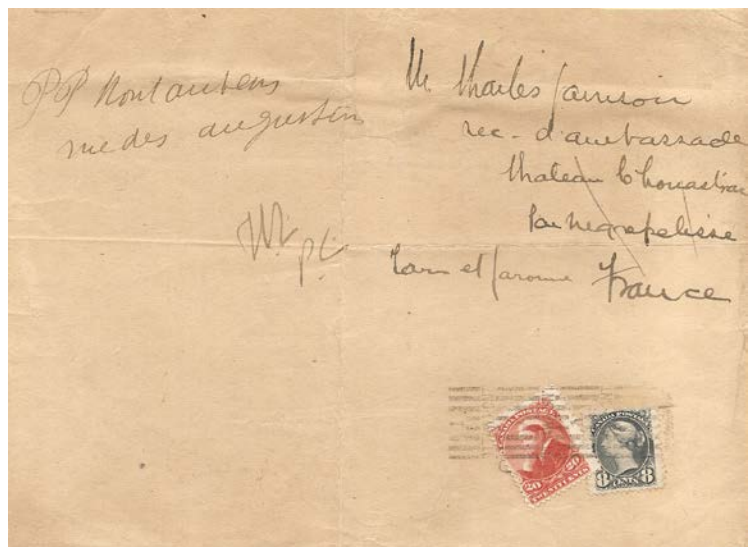 PP Montauban
rue des augustins
M Charles
sec. d'ambassade
Chateau
par Negrepelisse
Tarn et Garonne France
CANADA POSTAGE
20 20
TWENTY CENTS
CANADA POSTAGE
8 CENTS 8